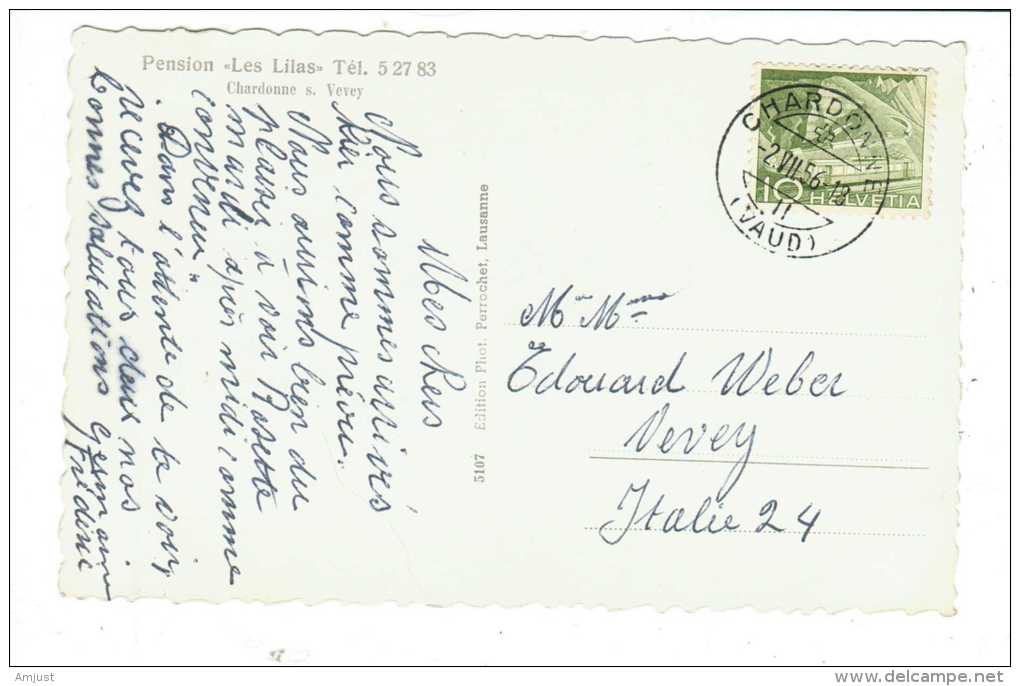 Pension «Les Lilas» Tél. 5 27 83
Chardonne s. Vevey
Mes chers
Nous sommes arrivés
hier comme prévu.
Nous aurions bien du
plaisir à voir Rosette
mardi après midi comme
convenu"
Dans l'attente de te voir,
Recevez tous deux nos
bonnes salutations
Germain
5107 Edition Phot. Perrochet, Lausanne
CHARDONNE
-2.VII.56-18
11
(VAUD)
10 HELVETIA
M. Mme
Edouard Weber
Vevey
Italie 24
Amjust
www.delcampe.net